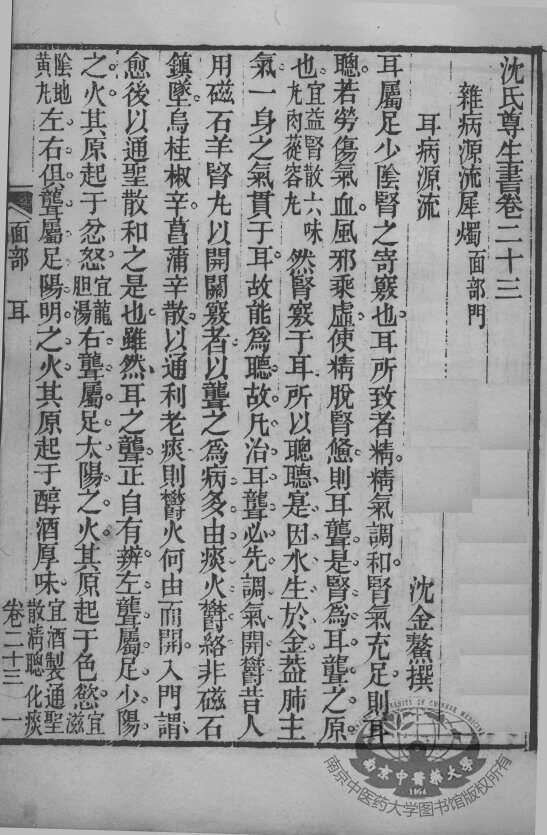 沈氏尊生書卷二十三
雜病源流犀燭面部門
沈金鰲撰
耳病源流
耳屬足少陰腎之寄竅也耳所致者精精氣調和腎氣充足則耳
聰若勞傷氣血風邪乘虛使精脫腎憊則耳聾是腎為耳聾之原
也宜益腎散六味丸肉蓯容丸然腎竅于耳所以聰聽寔因水生於金葢肺主
氣一身之氣貫于耳故能爲聽故凡治耳聾必先調氣開鬱昔人
用磁石羊腎丸以開關竅者以聾之爲病多由痰火鬱絡非磁石
鎮墜烏桂椒辛菖蒲辛散以通利老痰則鬱火何由而開入門謂
愈後以通聖散和之是也雖然耳之聾正自有辨左聾屬足少陽
之火其原起于忿怒宜龍胆湯右聾屬足太陽之火其原起于色慾宜滋
陰地黃丸左右俱聾屬足陽明之火其原起于醇酒厚味宜酒製通聖散淸聰化痰
面部 耳
卷二十三 一
UNIVERSITY OF CHINESE MEDICINE
南京中醫藥大學
1954
南京中医药大学图书馆版权所有